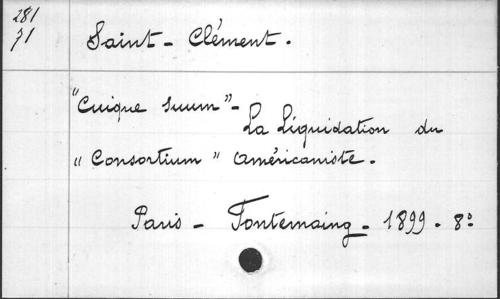 281
71
Saint-Clément.
"Cuique Suum" - La Liquidation du
"Consortium" américaniste.
Paris - Fontemoing - 1899 - 8º